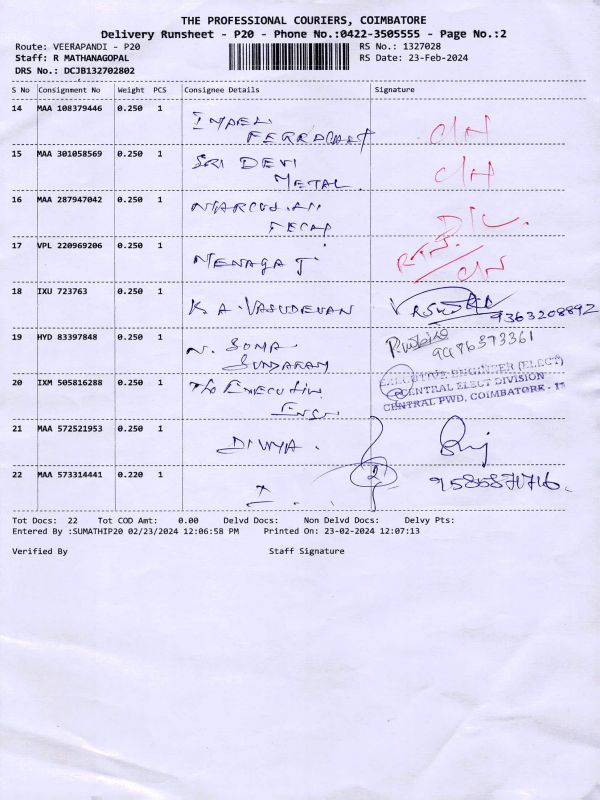 THE PROFESSIONAL COURIERS, COIMBATORE
Delivery Runsheet - P20 - Phone No.:0422-3505555 - Page No.:2
Route: VEERAPANDI - P20
RS No.: 1327028
Staff: R MATHANAGOPAL
RS Date: 23-Feb-2024
DRS No.: DCJB132702802
S No Consignment No Weight PCS Consignee Details Signature
14 MAA 108379446 0.250 1
C/N
15 MAA 301058569 0.250 1 SRI DEVI
METAL. C/N
16 MAA 287947042 0.250 1
D/L.
17 VPL 220969206 0.250 1 MENAGA J
C/N
18 IXU 723763 0.250 1 K A. VASUDEVAN
9363208892
19 HYD 83397848 0.250 1 N. SOMA
SUNDARAM
9996573361
20 IXM 505816288 0.250 1 The EXECUTIVE
EXECUTIVE ENGINEER (ELECT)
CENTRAL ELECT DIVISION
CENTRAL PWD, COIMBATORE - 11
21 MAA 572521953 0.250 1 DIVYA.
22 MAA 573314441 0.220 1
2
Tot Docs: 22 Tot COD Amt: 0.00 Delvd Docs: Non Delvd Docs: Delvy Pts:
Entered By :SUMATHIP20 02/23/2024 12:06:58 PM Printed On: 23-02-2024 12:07:13
Verified By Staff Signature